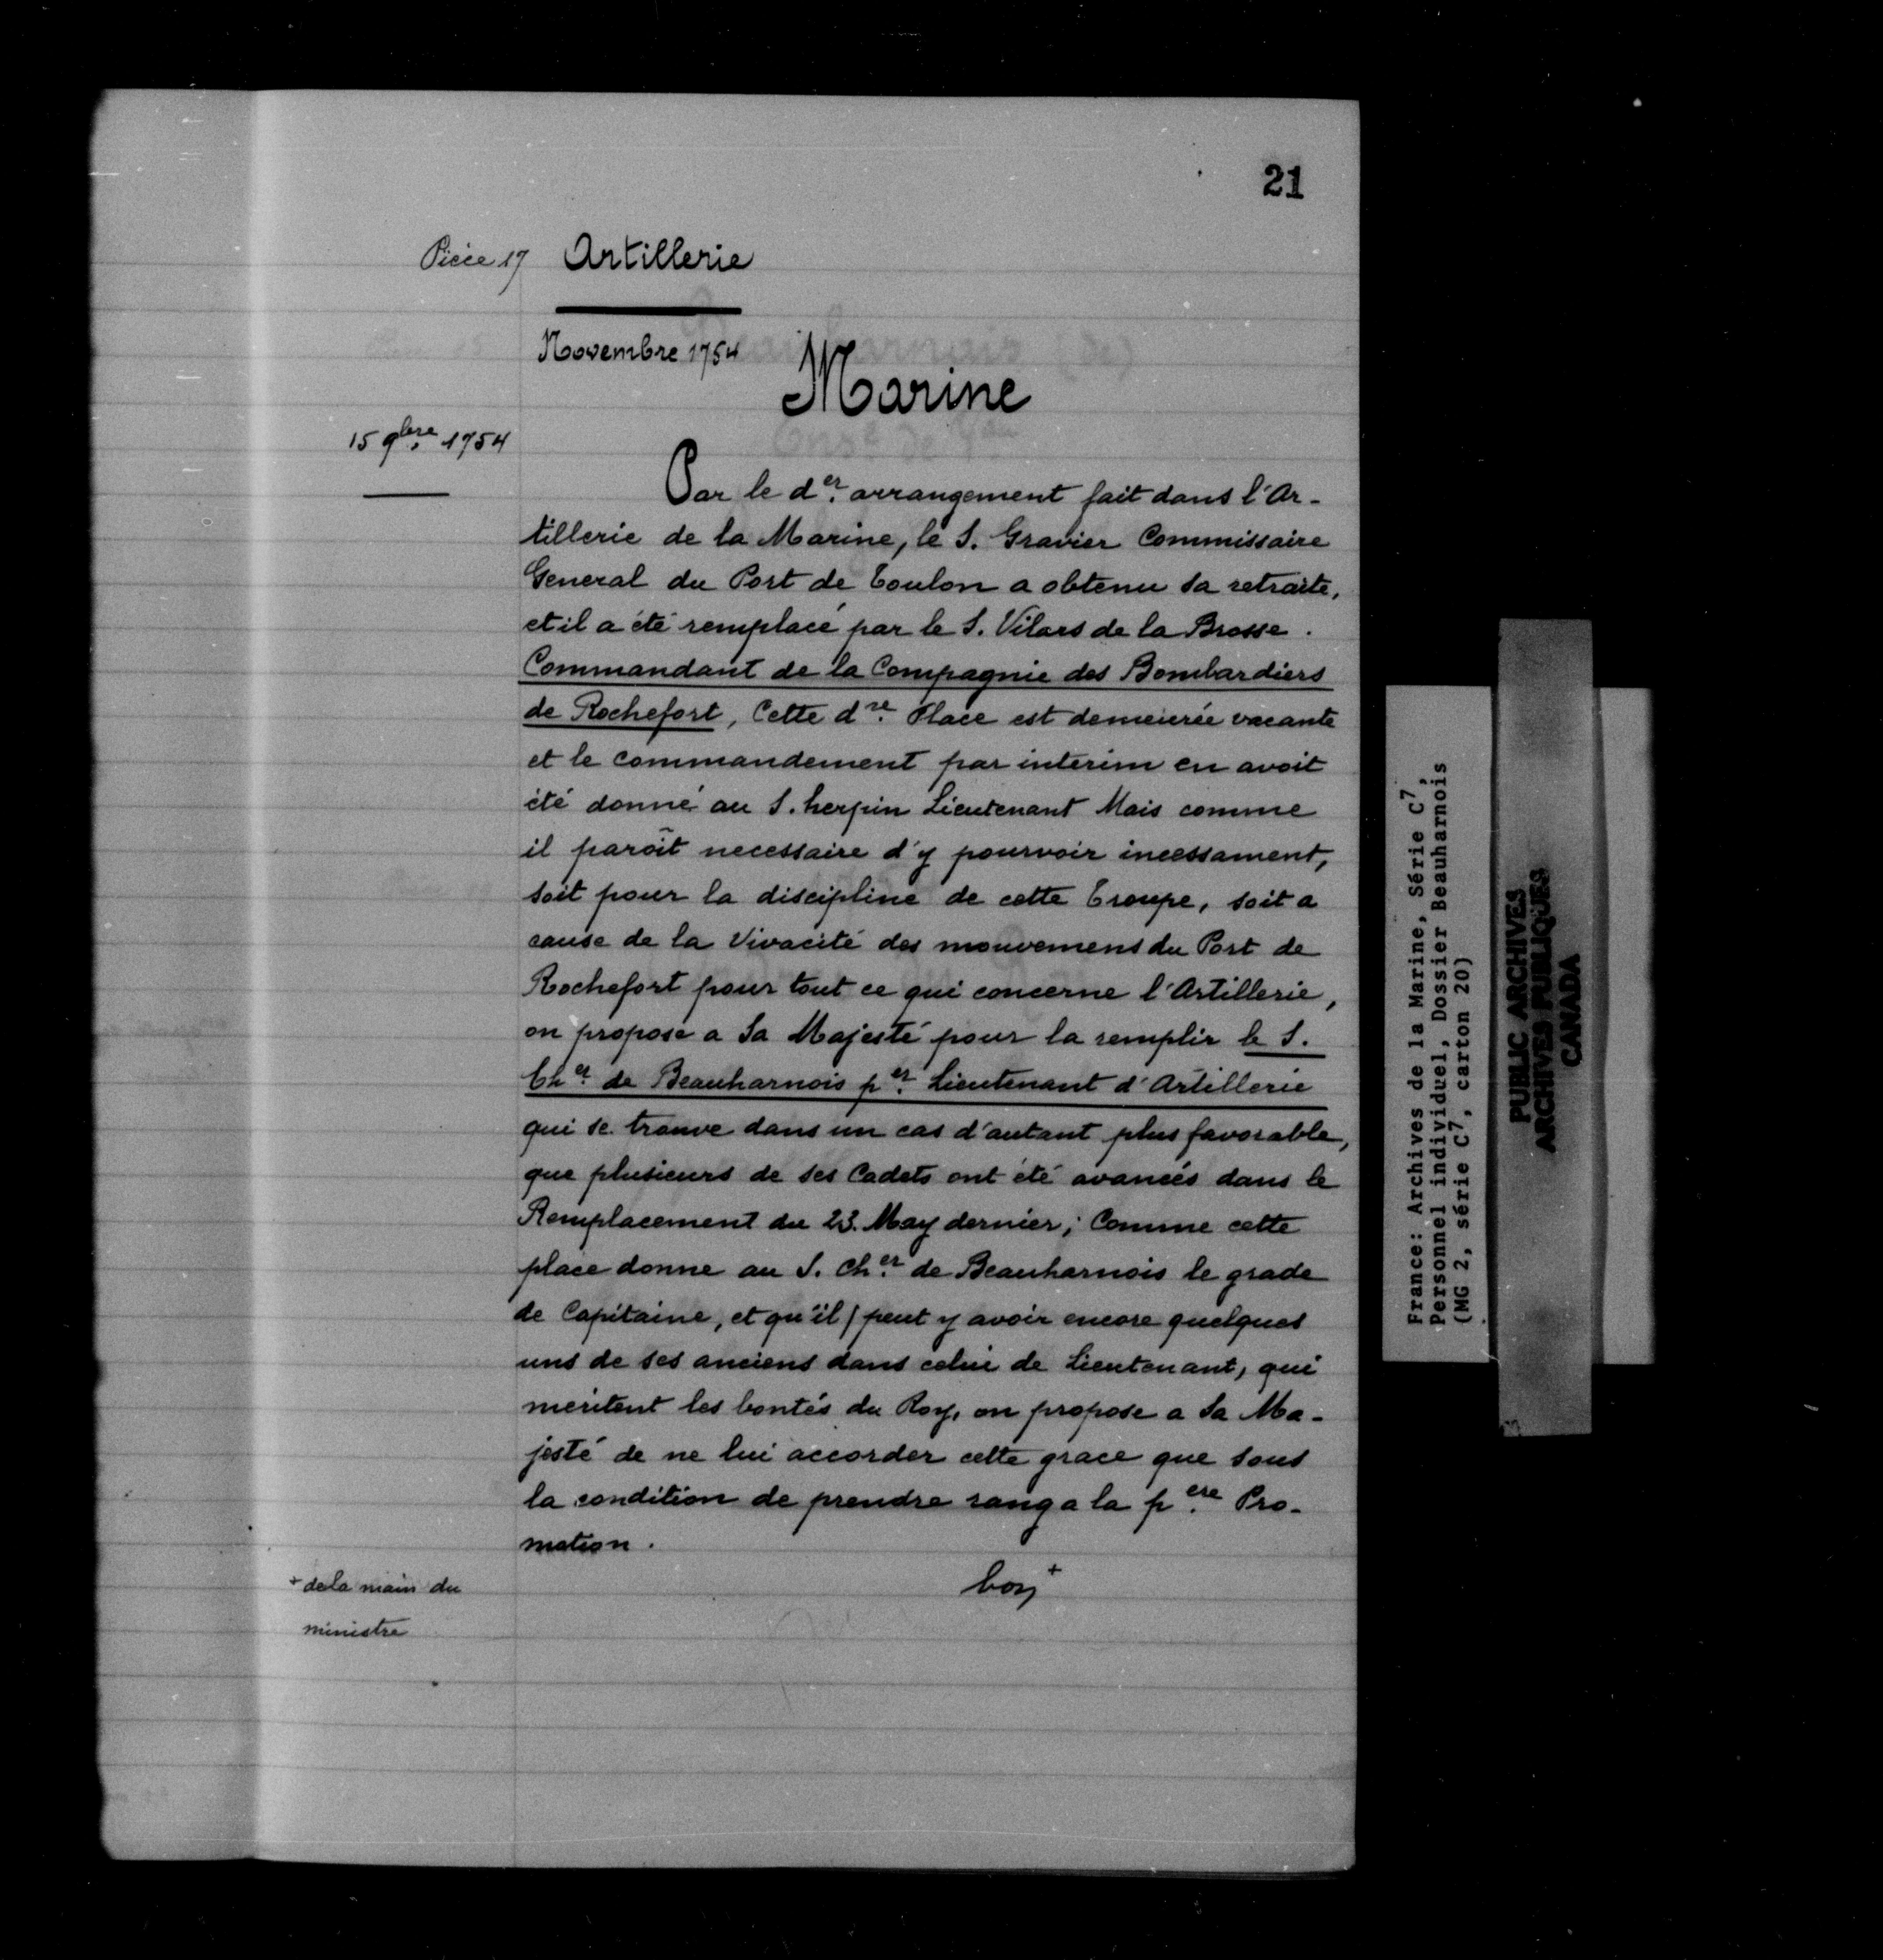 21
Pièce 17 Artillerie
Novembre 1754
Marine
15 9bre. 1754
Par le der. arrangement fait dans l'Ar-
tillerie de la Marine, le S. Gravier Commissaire
General du Port de Toulon a obtenu sa retraite,
et il a été remplacé par le S. Vilars de la Brosse.
Commandant de la Compagnie des Bombardiers
de Rochefort, Cette dre. Place est demeurée vacante
et le commandement par interim en avoit
été donné au S. herpin Lieutenant Mais comme
il paroît necessaire d'y pourvoir incessament,
soit pour la discipline de cette Troupe, soit a
cause de la Vivacité des mouvemens du Port de
Rochefort pour tout ce qui concerne l'Artillerie,
on propose a Sa Majesté pour la remplir le S.
Cher. de Beauharnois per. Lieutenant d'Artillerie
qui se trouve dans un cas d'autant plus favorable,
que plusieurs de ses Cadets ont été avancés dans le
Remplacement du 23. May dernier; Comme cette
place donne au S. Cher. de Beauharnois le grade
de Capitaine, et qu'il peut y avoir encore quelques
uns de ses anciens dans celui de Lieutenant, qui
meritent les bontés du Roy, on propose a Sa Ma-
jesté de ne lui accorder cette grace que sous
la condition de prendre rang a la pere. Pro-
motion.
bon +
+ de la main du
ministre
France: Archives de la Marine, Série C7,
Personnel individuel, Dossier Beauharnois
(MG 2, série C7, carton 20)
PUBLIC ARCHIVES
ARCHIVES PUBLIQUES
CANADA